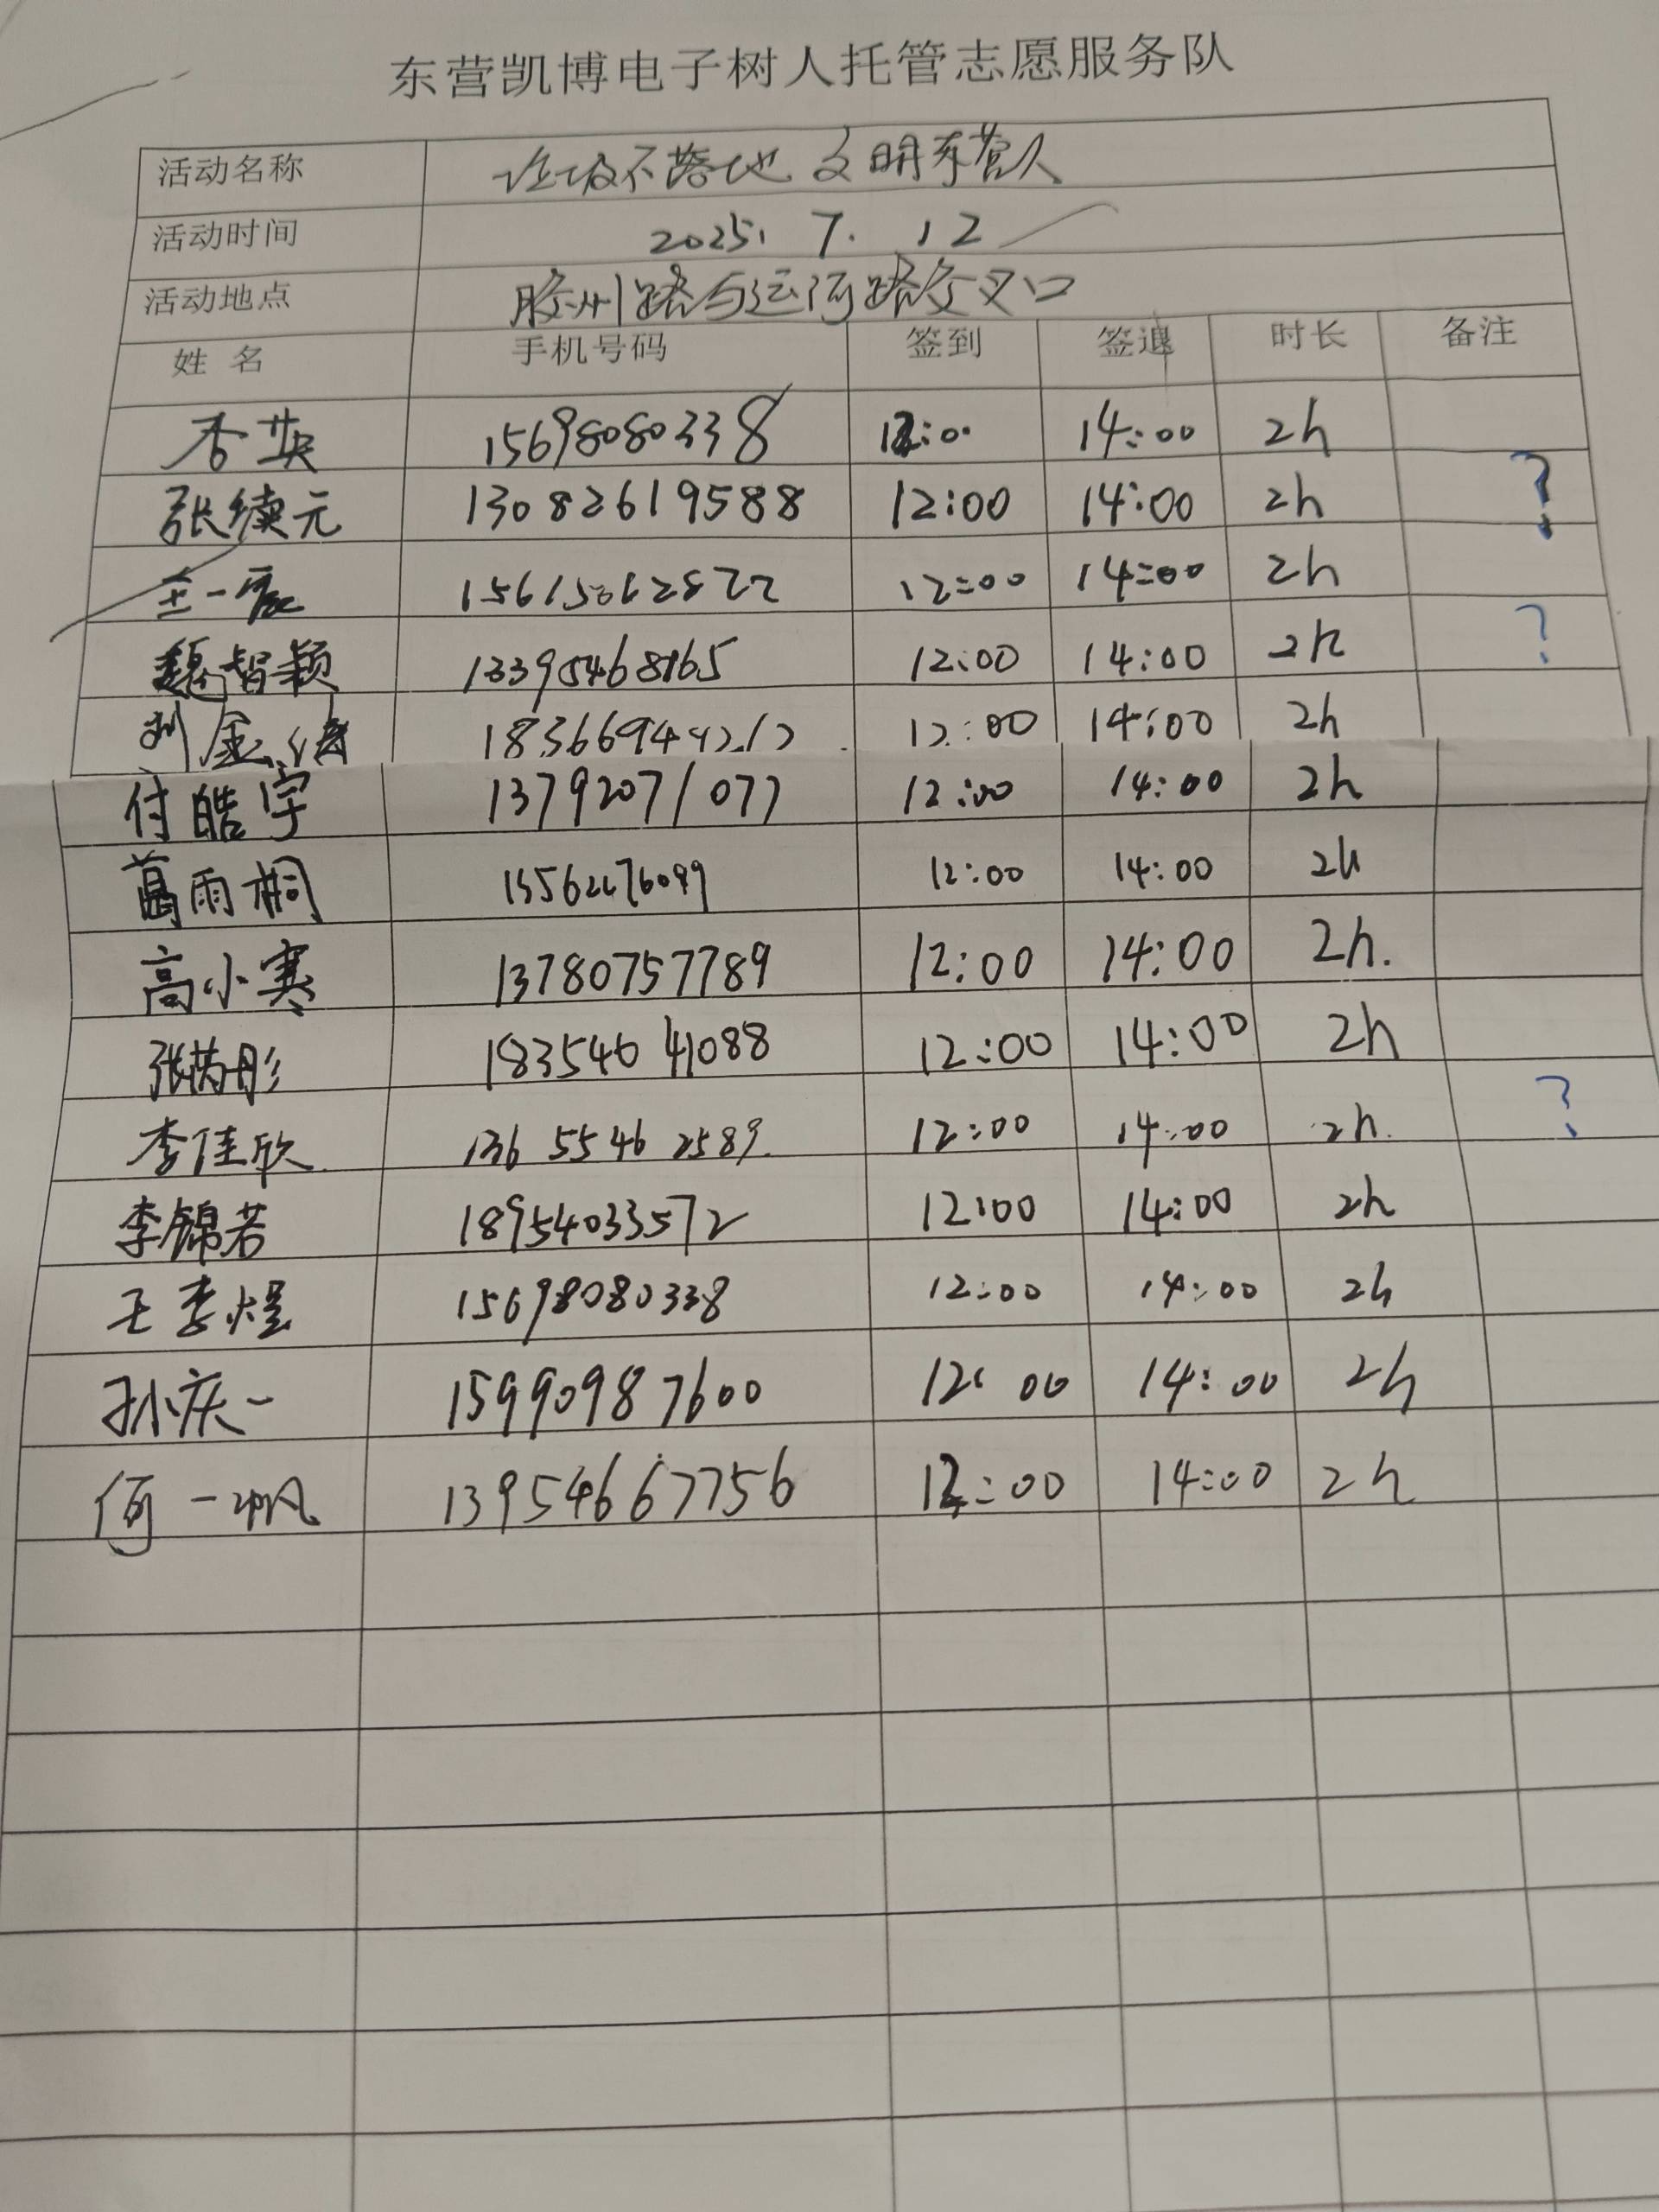 东营凯博电子树人托管志愿服务队
活动名称 垃圾不落地 文明东营人
活动时间 2025. 7. 12
活动地点 胶州路与运河路交叉口
姓 名 手机号码 签到 签退 时长 备注
李英 15698080338 12:00 14:00 2h
张续元 13082619588 12:00 14:00 2h ?
王一宸 12:00 14:00 2h
魏智颖 13395468165 12:00 14:00 2h ?
刘金 12:00 14:00 2h
付皓宇 13792071077 12:00 14:00 2h
葛雨桐 12:00 14:00 2h
高小寒 13780757789 12:00 14:00 2h.
张芮彤 18354641088 12:00 14:00 2h
李佳欣 136 5546 2589. 12:00 14:00 2h. ?
李锦若 18954033572 12:00 14:00 2h
王李煜 15698080338 12:00 14:00 2h
孙庆一 15990987600 12:00 14:00 2h
何一帆 13954667756 12:00 14:00 2h